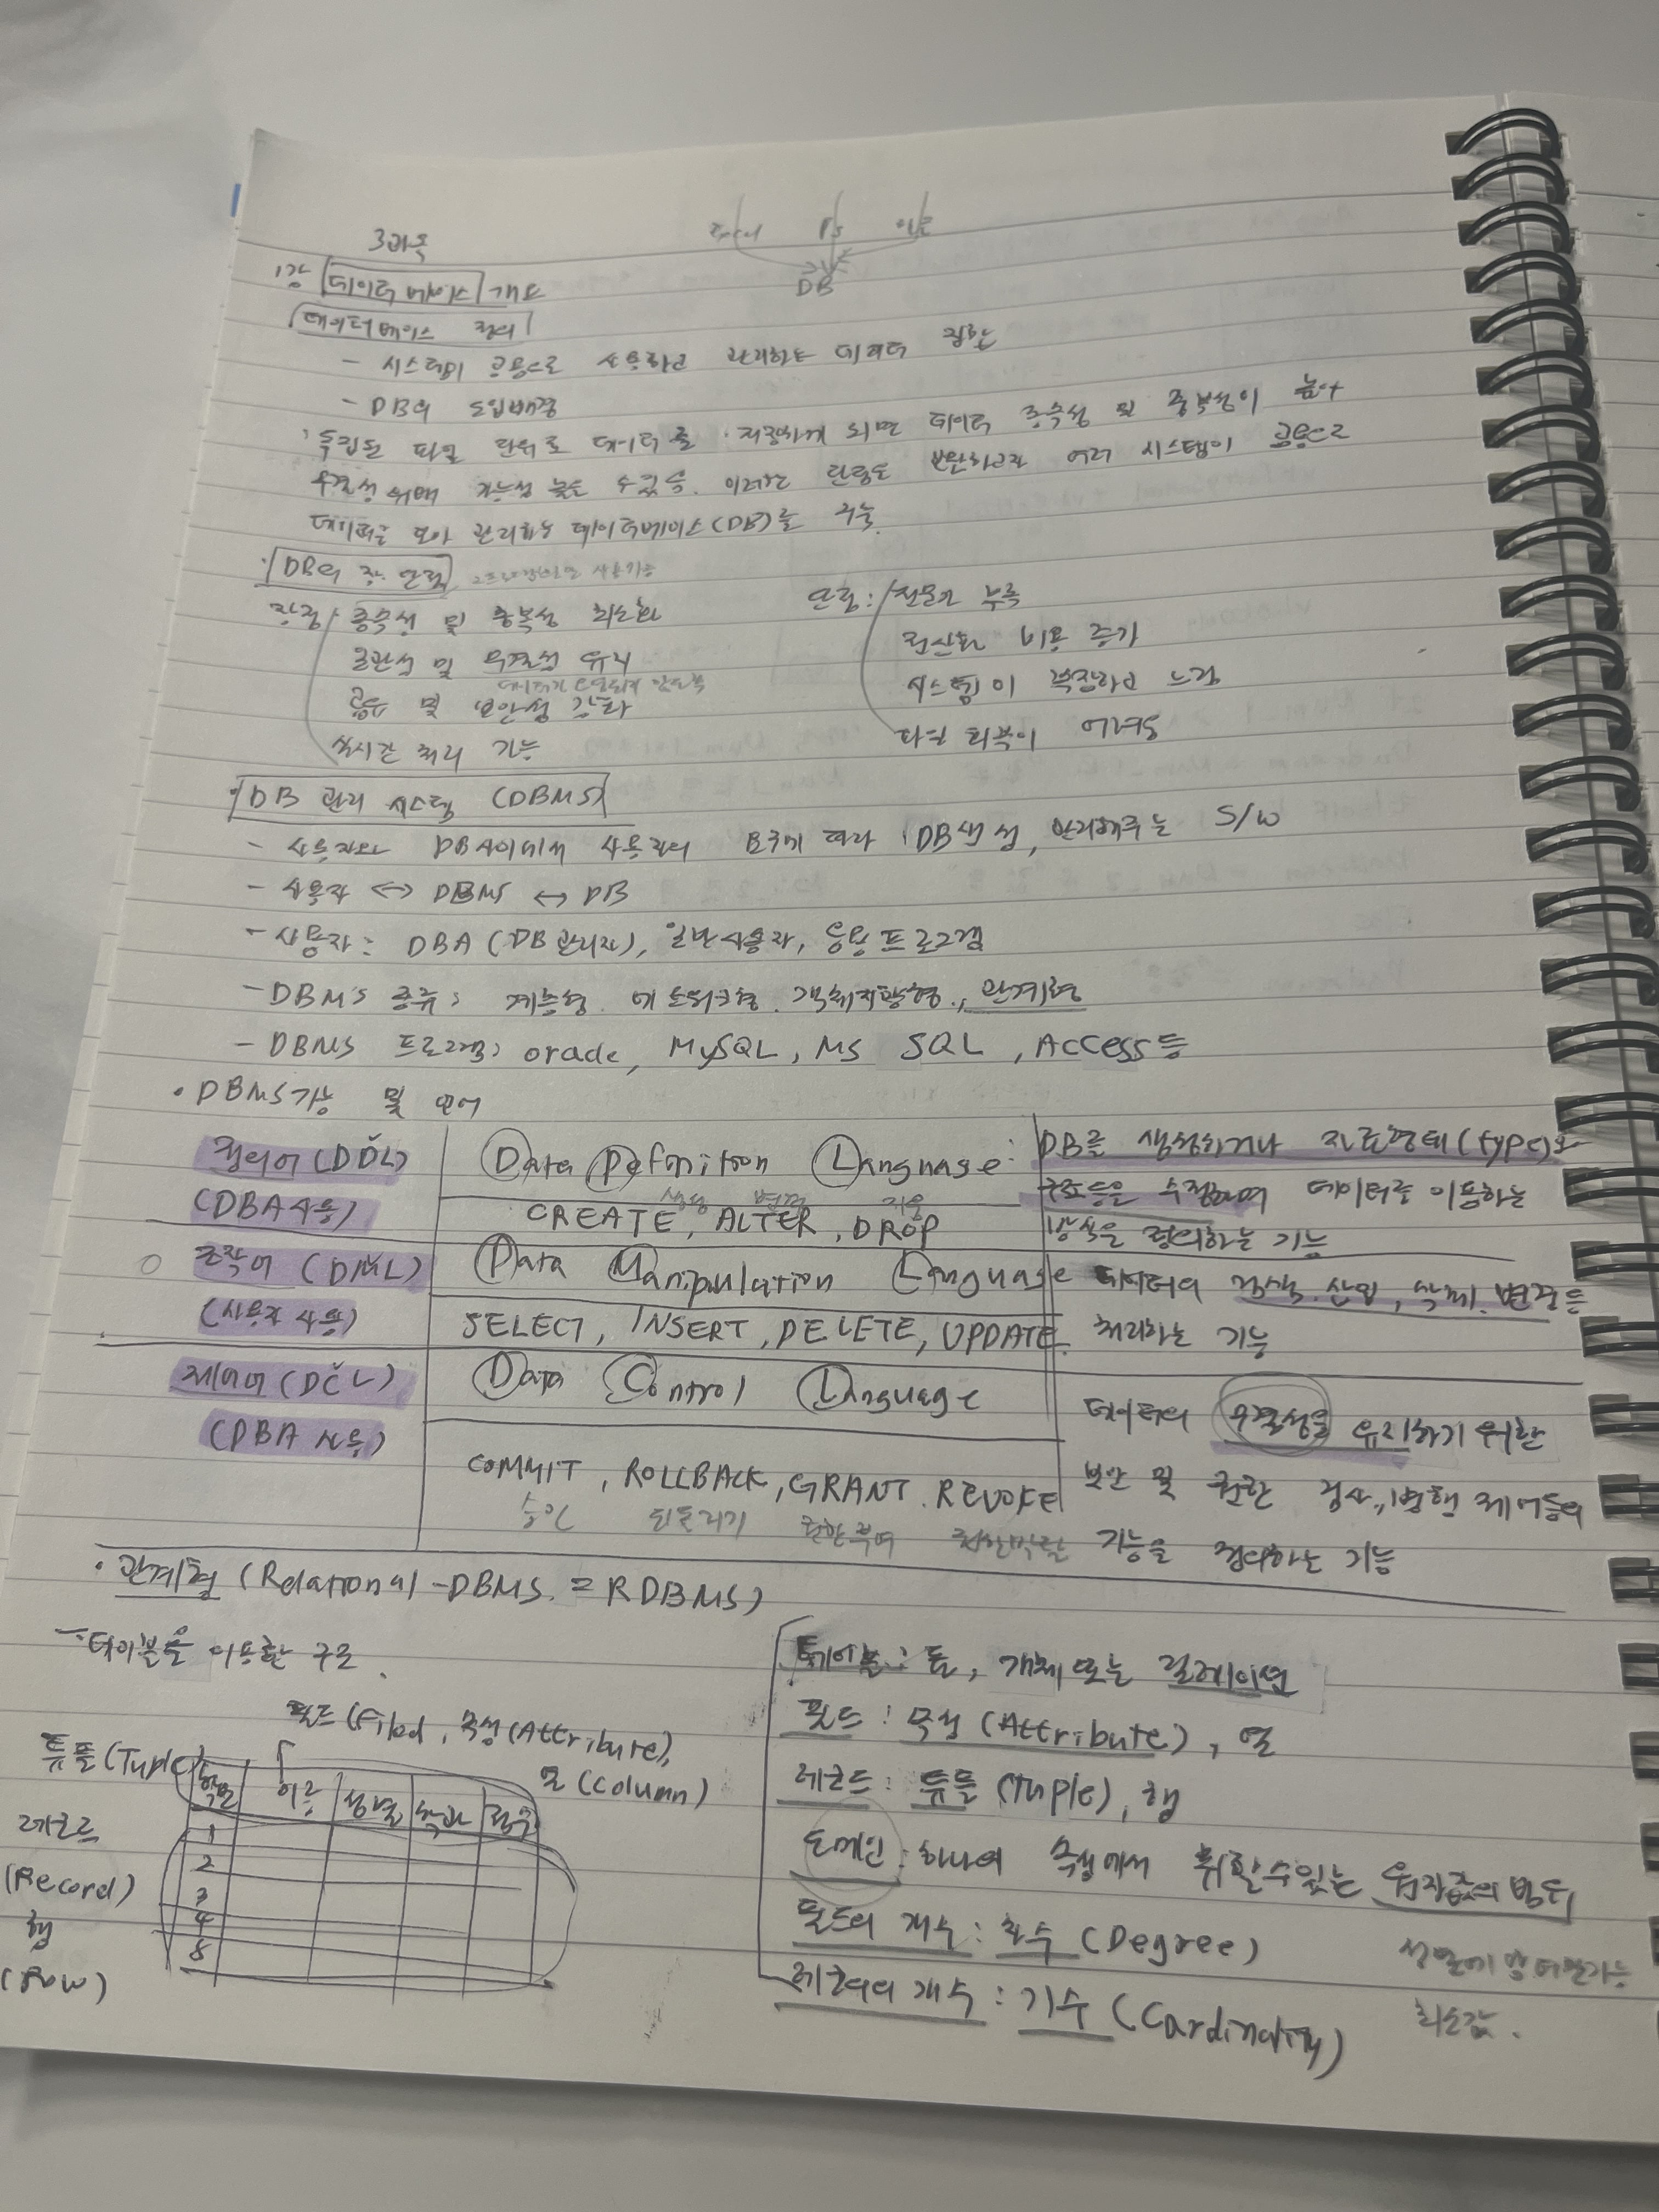 3과목
Excel
DB
1강 데이터 베이스 개요
데이터베이스 정의
- 시스템이 공용으로 사용하고 관리하는 데이터 집합
- DB의 도입배경
독립된 파일 단위로 데이터를 저장하게 되면 데이터 종속성 및 중복성이 높아
무결성 위배 가능성 높을 수 있음. 이러한 단점을 보완하고자 여러 시스템이 공용으로
데이터를 모아 관리하는 데이터베이스(DB)를 구축
· DB의 장·단점
장점 종속성 및 중복성 최소화
일관성 및 무결성 유지
공유 및 보안성 강화
실시간 처리 가능
단점: 전문가 부족
전산화 비용 증가
시스템이 복잡하고 느림
파일 회복이 어려움
· DB 관리 시스템 (DBMS)
- 사용자와 DB사이에서 사용자의 요구에 따라 DB생성, 관리해주는 S/W
- 사용자 <-> DBMS <-> DB
- 사용자: DBA (DB관리자), 일반사용자, 응용프로그램
- DBMS 종류: 계층형, 네트워크형, 객체지향형, 관계형
- DBMS 프로그램: oracle, MySQL, MS SQL, Access등
· DBMS기능 및 언어
정의어 (DDL)
(DBA사용)
Data Definition Language:
생성 변경 지움
CREATE, ALTER, DROP
DB를 생성하거나 자료형태(type)와
구조등을 수정하며 데이터를 이용하는
방식을 정의하는 기능
조작어 (DML)
(사용자 사용)
Data Manipulation Language
SELECT, INSERT, DELETE, UPDATE
데이터의 검색, 삽입, 삭제, 변경을
처리하는 기능
제어어 (DCL)
(DBA 사용)
Data Control Language
COMMIT, ROLLBACK, GRANT, REVOKE
승인 되돌리기 권한부여 권한박탈
데이터의 무결성을 유지하기 위한
보안 및 권한 검사, 병행 제어등의
기능을 정의하는 기능
· 관계형 (Relational-DBMS = RDBMS)
- 테이블을 이용한 구조.
필드(Filed, 속성(Attribute),
열(column)
튜플(Tuple)
레코드
(Record)
행
(Row)
학번 이름 성별 학과 점수
1
2
3
4
5
테이블: 표, 개체 또는 릴레이션
필드: 속성 (Attribute), 열
레코드: 튜플 (Tuple), 행
도메인: 하나의 속성에서 취할수있는 원자값의 범위
필드의 개수: 차수 (Degree)
레코드의 개수: 기수 (Cardinality)